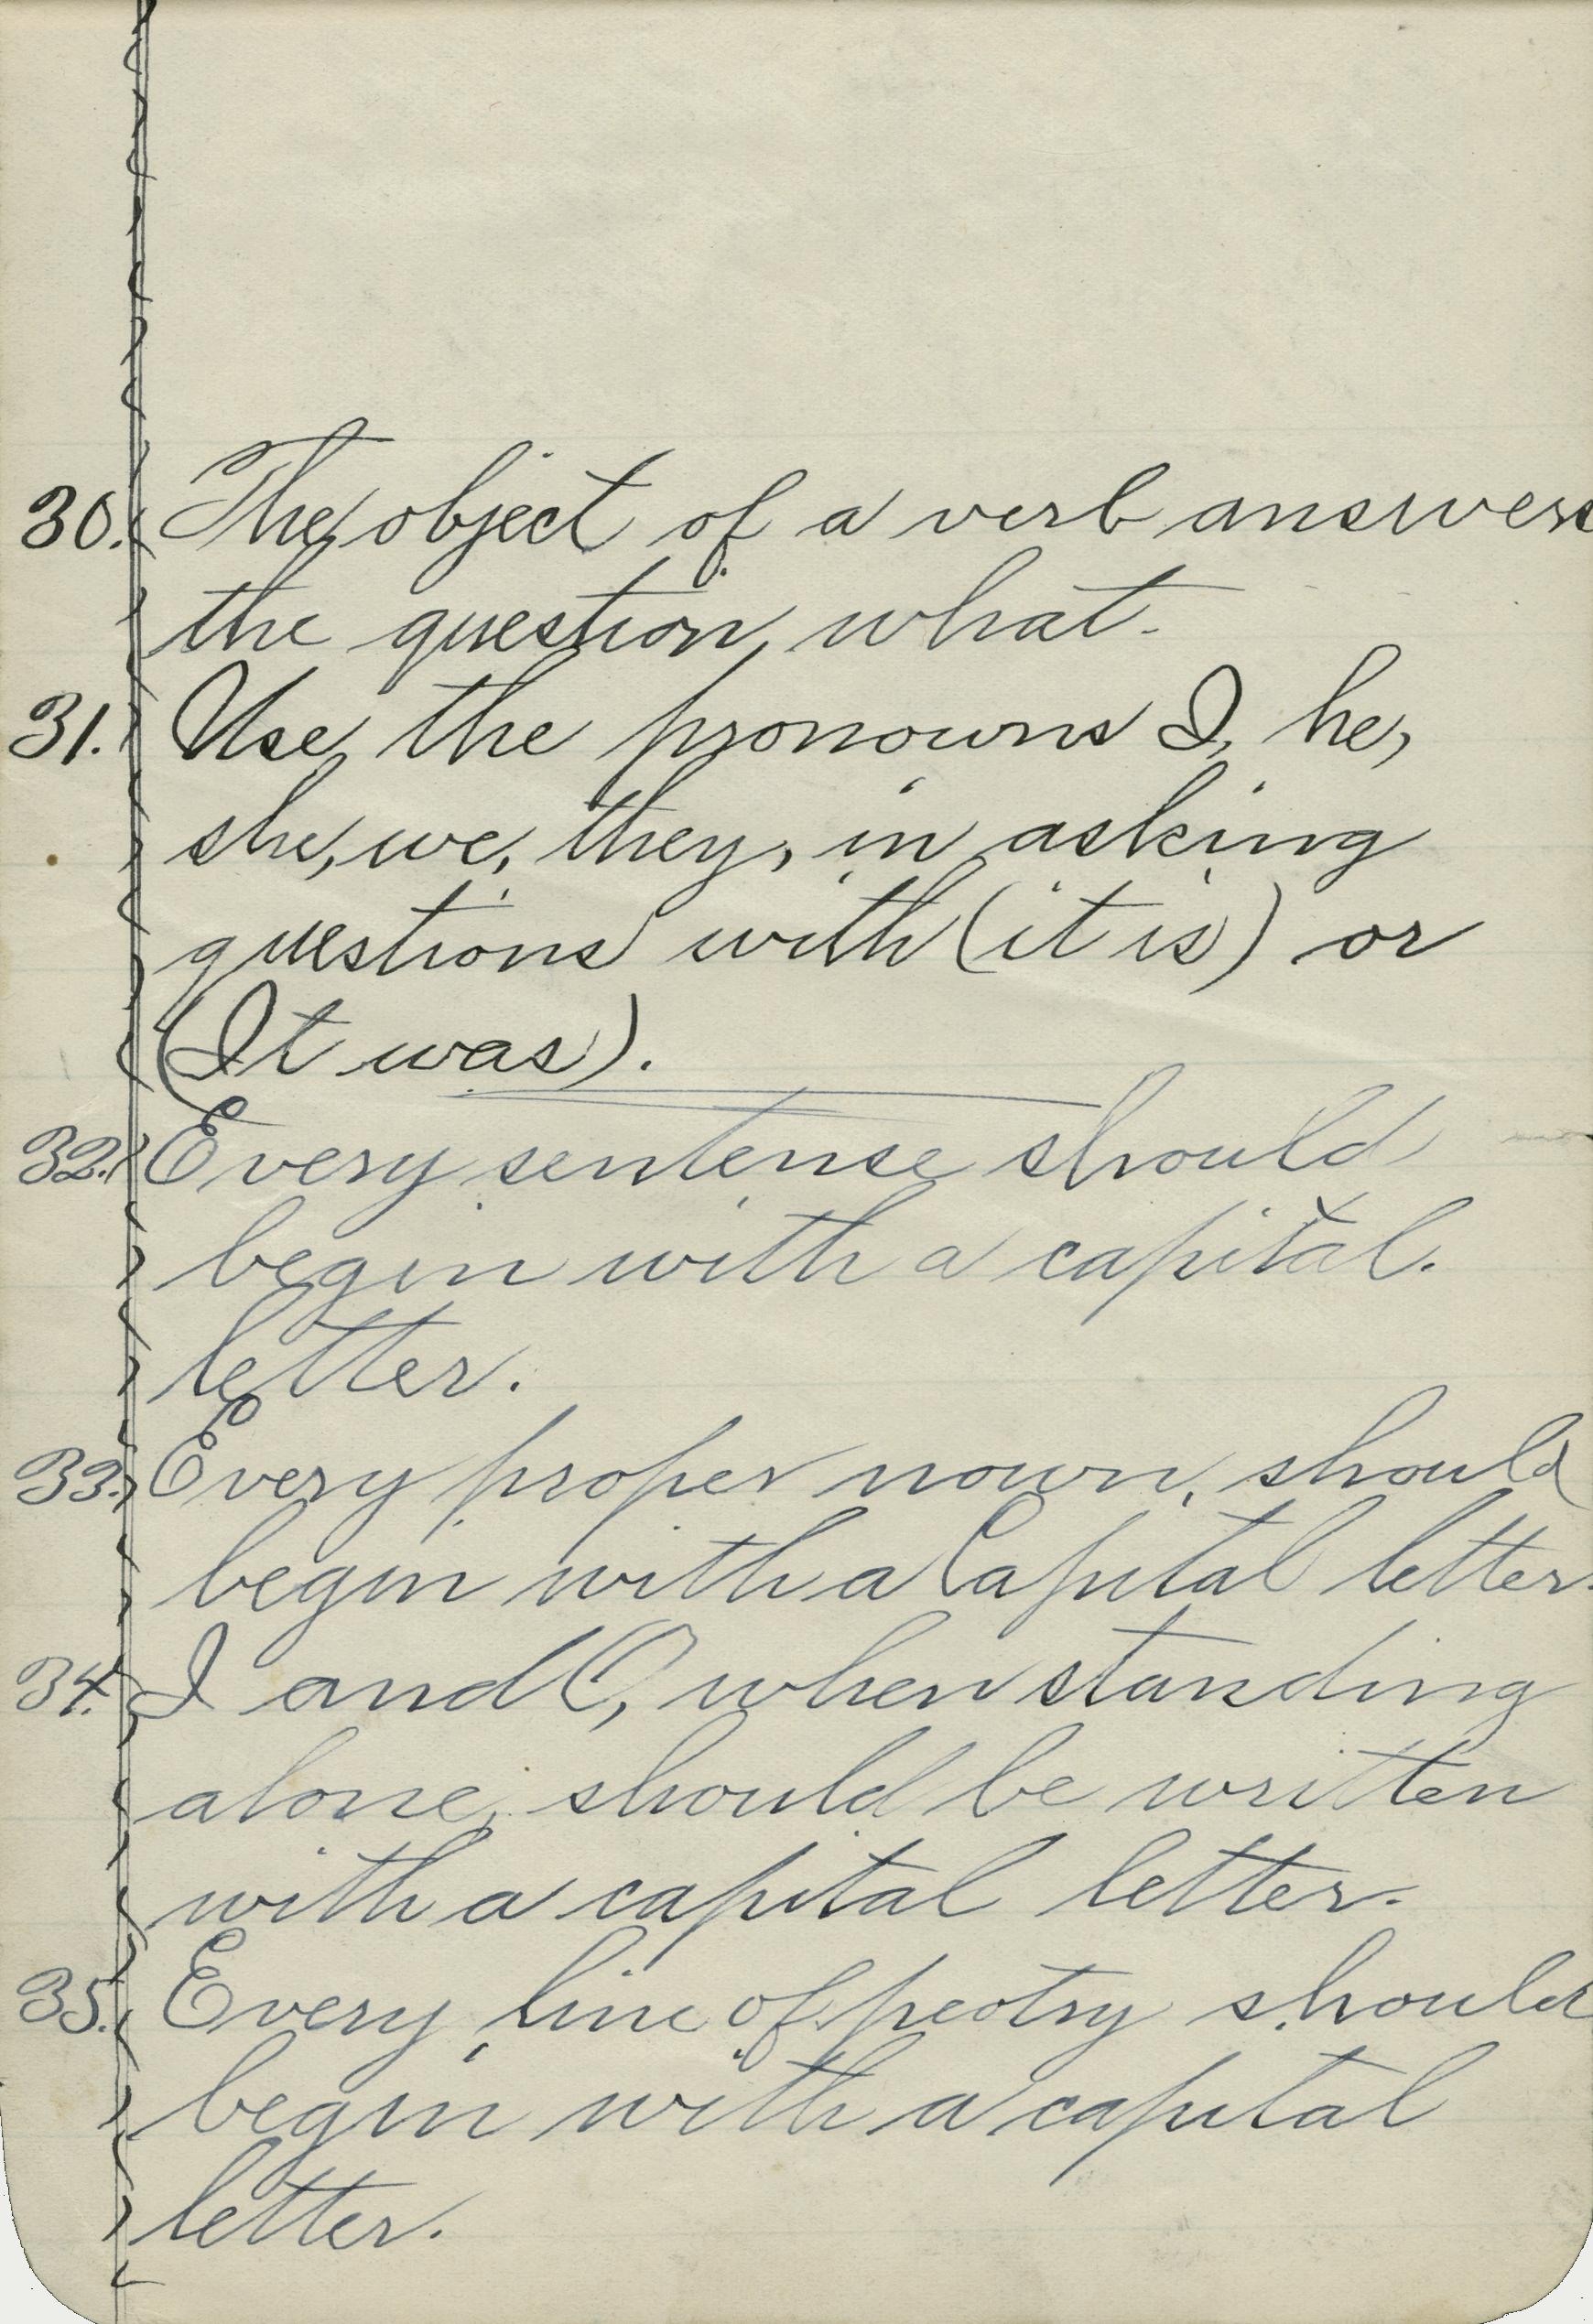 30. The object of a verb answers
the question, what.
31. Use, the pronouns I, he,
she, we, they, in asking
questions with (it is) or
(It was).
32. Every sentense should
begin with a capital.
letter.
33. Every proper noun, should
begin with a Capital letter.
34. I and O, when standing
alone, should be written
with a capital letter.
35. Every line of peotry should
begin with a capital
letter.